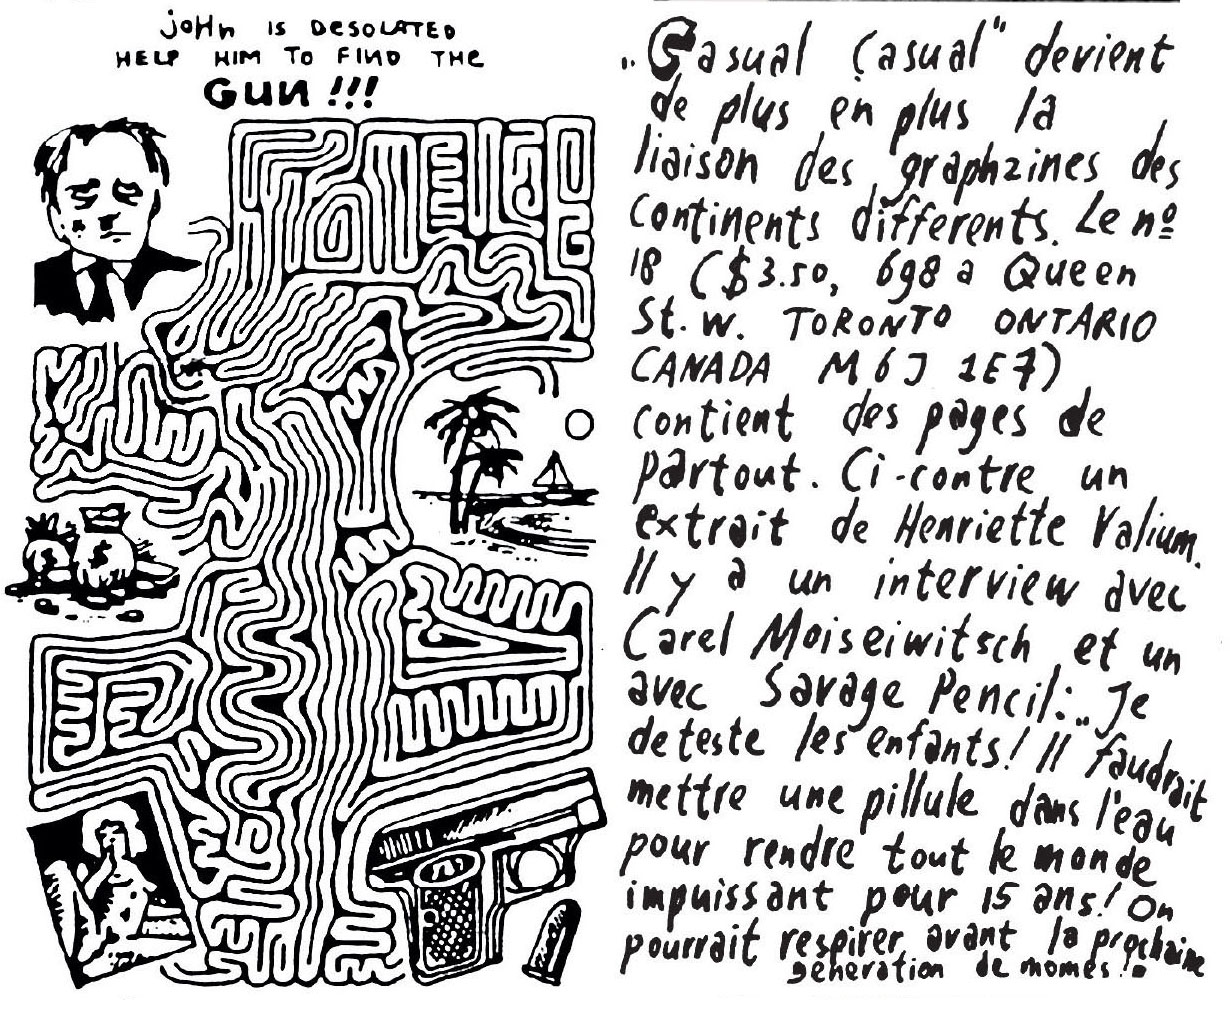 joHn is DESOLATED
HELP HIM TO FIND THE
GUN !!!
„Casual Casual" devient
de plus en plus la
liaison des graphzines des
continents différents. Le nº
18 ($3.50, 698 a Queen
St. W. TORONTO ONTARIO
CANADA M6J 1E7)
contient des pages de
partout. Ci-contre un
extrait de Henriette Valium.
Il y a un interview avec
Carel Moiseiwitsch et un
avec Savage Pencil: „Je
deteste les enfants! Il faudrait
mettre une pillule dans l'eau
pour rendre tout le monde
impuissant pour 15 ans! On
pourrait respirer avant la prochaine
géneration de momes!"